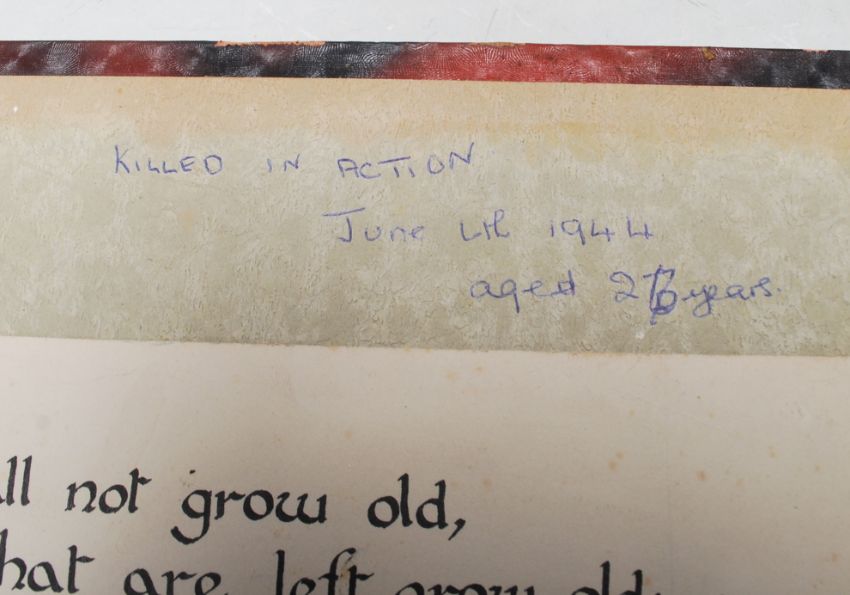 KILLED IN ACTION
June 4th 1944
aged 26 years.
all not grow old,
that are left grow old: